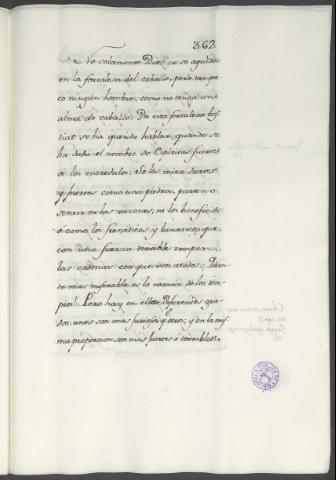 362.
No solamente Dios no se agrada
en la fortaleza del caballo, pero tampo
co ningun hombre, como no tenga una
alma de caballo. De esta fortaleza bes
tial se ha querido hablar, quando se
ha dado el nombre de Espiritus fuertes
a los incredulos. Se les mira duros
y fuertes como unas piedras, para no
sentir ni las razones, ni los beneficios:
ó como los freneticos y lunaticos que
con una fuerza terrible rompen
las cadenas con que son atados;
mui miserable es la mania de los im
pios! Pero hay en ellos diferentes gra
dos: unos son mas furiosos q otros; y en la mis
ma proporcion son mas fuertes ó terribles.